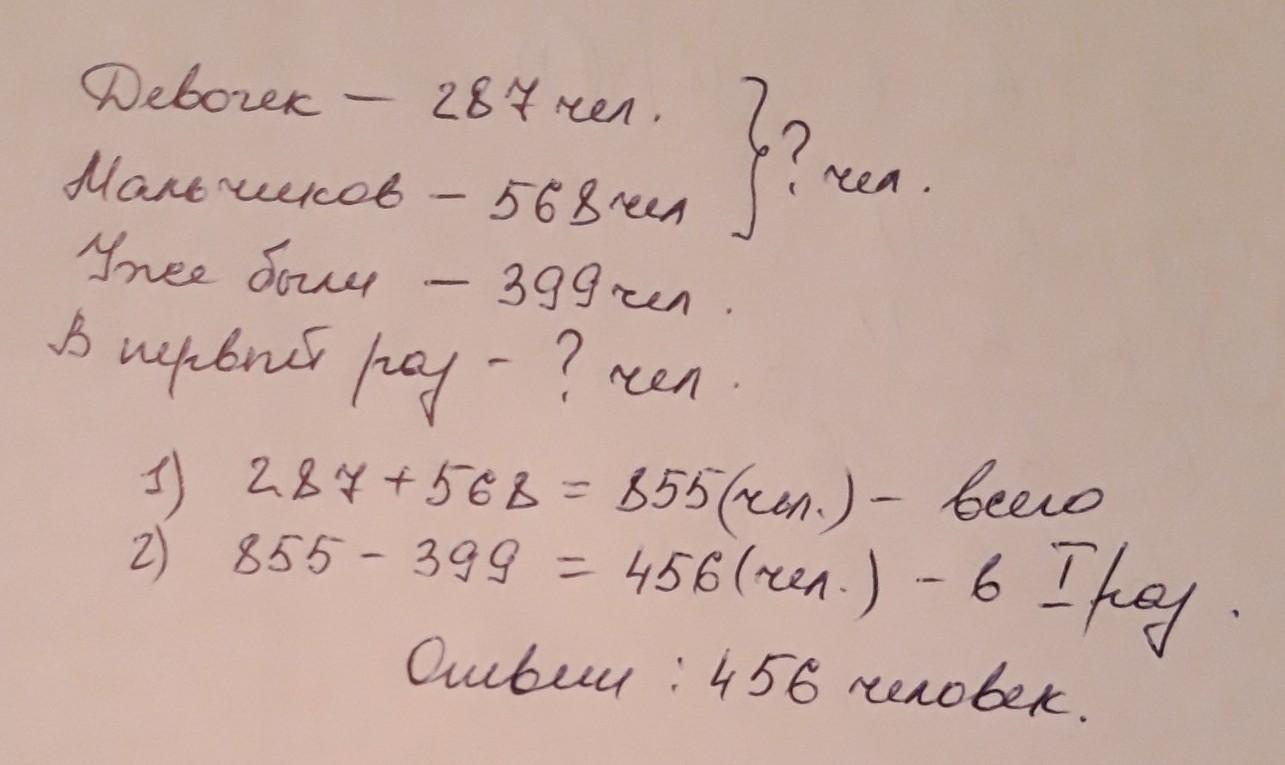 Девочек — 287 чел. } ? чел.
Мальчиков — 568 чел
Уже были — 399 чел.
В первый раз - ? чел.
1) 287 + 568 = 855 (чел.) - всего
2) 855 - 399 = 456 (чел.) - в I раз.
Ответ : 456 человек.